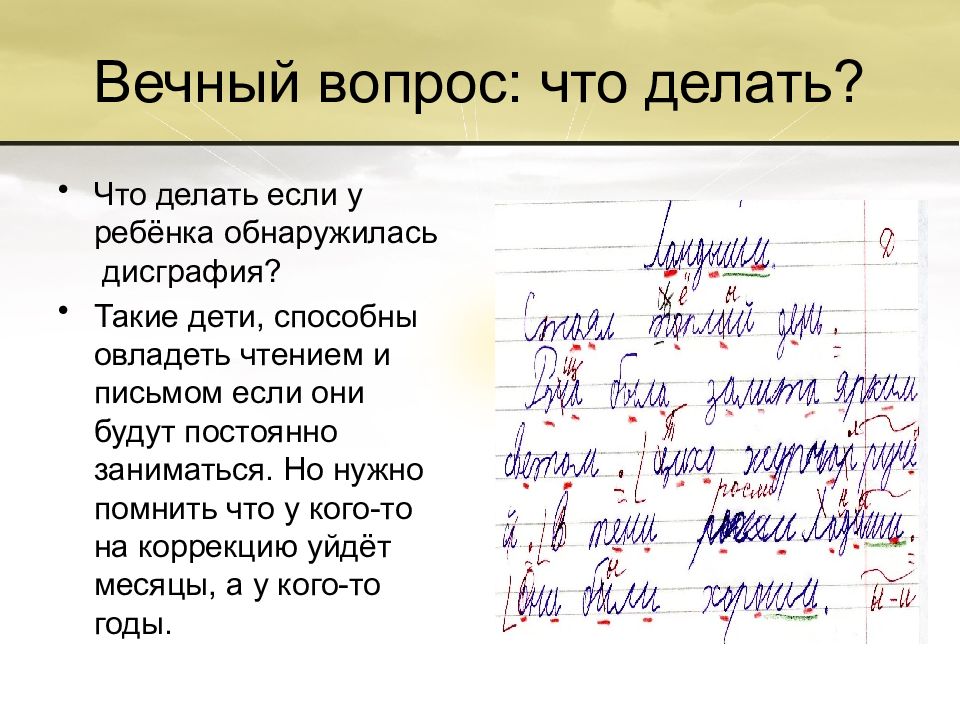 Вечный вопрос: что делать?
• Что делать если у
ребёнка обнаружилась
дисграфия?
• Такие дети, способны
овладеть чтением и
письмом если они
будут постоянно
заниматься. Но нужно
помнить что у кого-то
на коррекцию уйдёт
месяцы, а у кого-то
годы.
Ландыши.
ё ы
Стоял топлый день.
щ
Руча была залита ярким
т
светом. Цихо журчах ручё
росли н и
й. В тени
ы
Они были хороши. ы-и